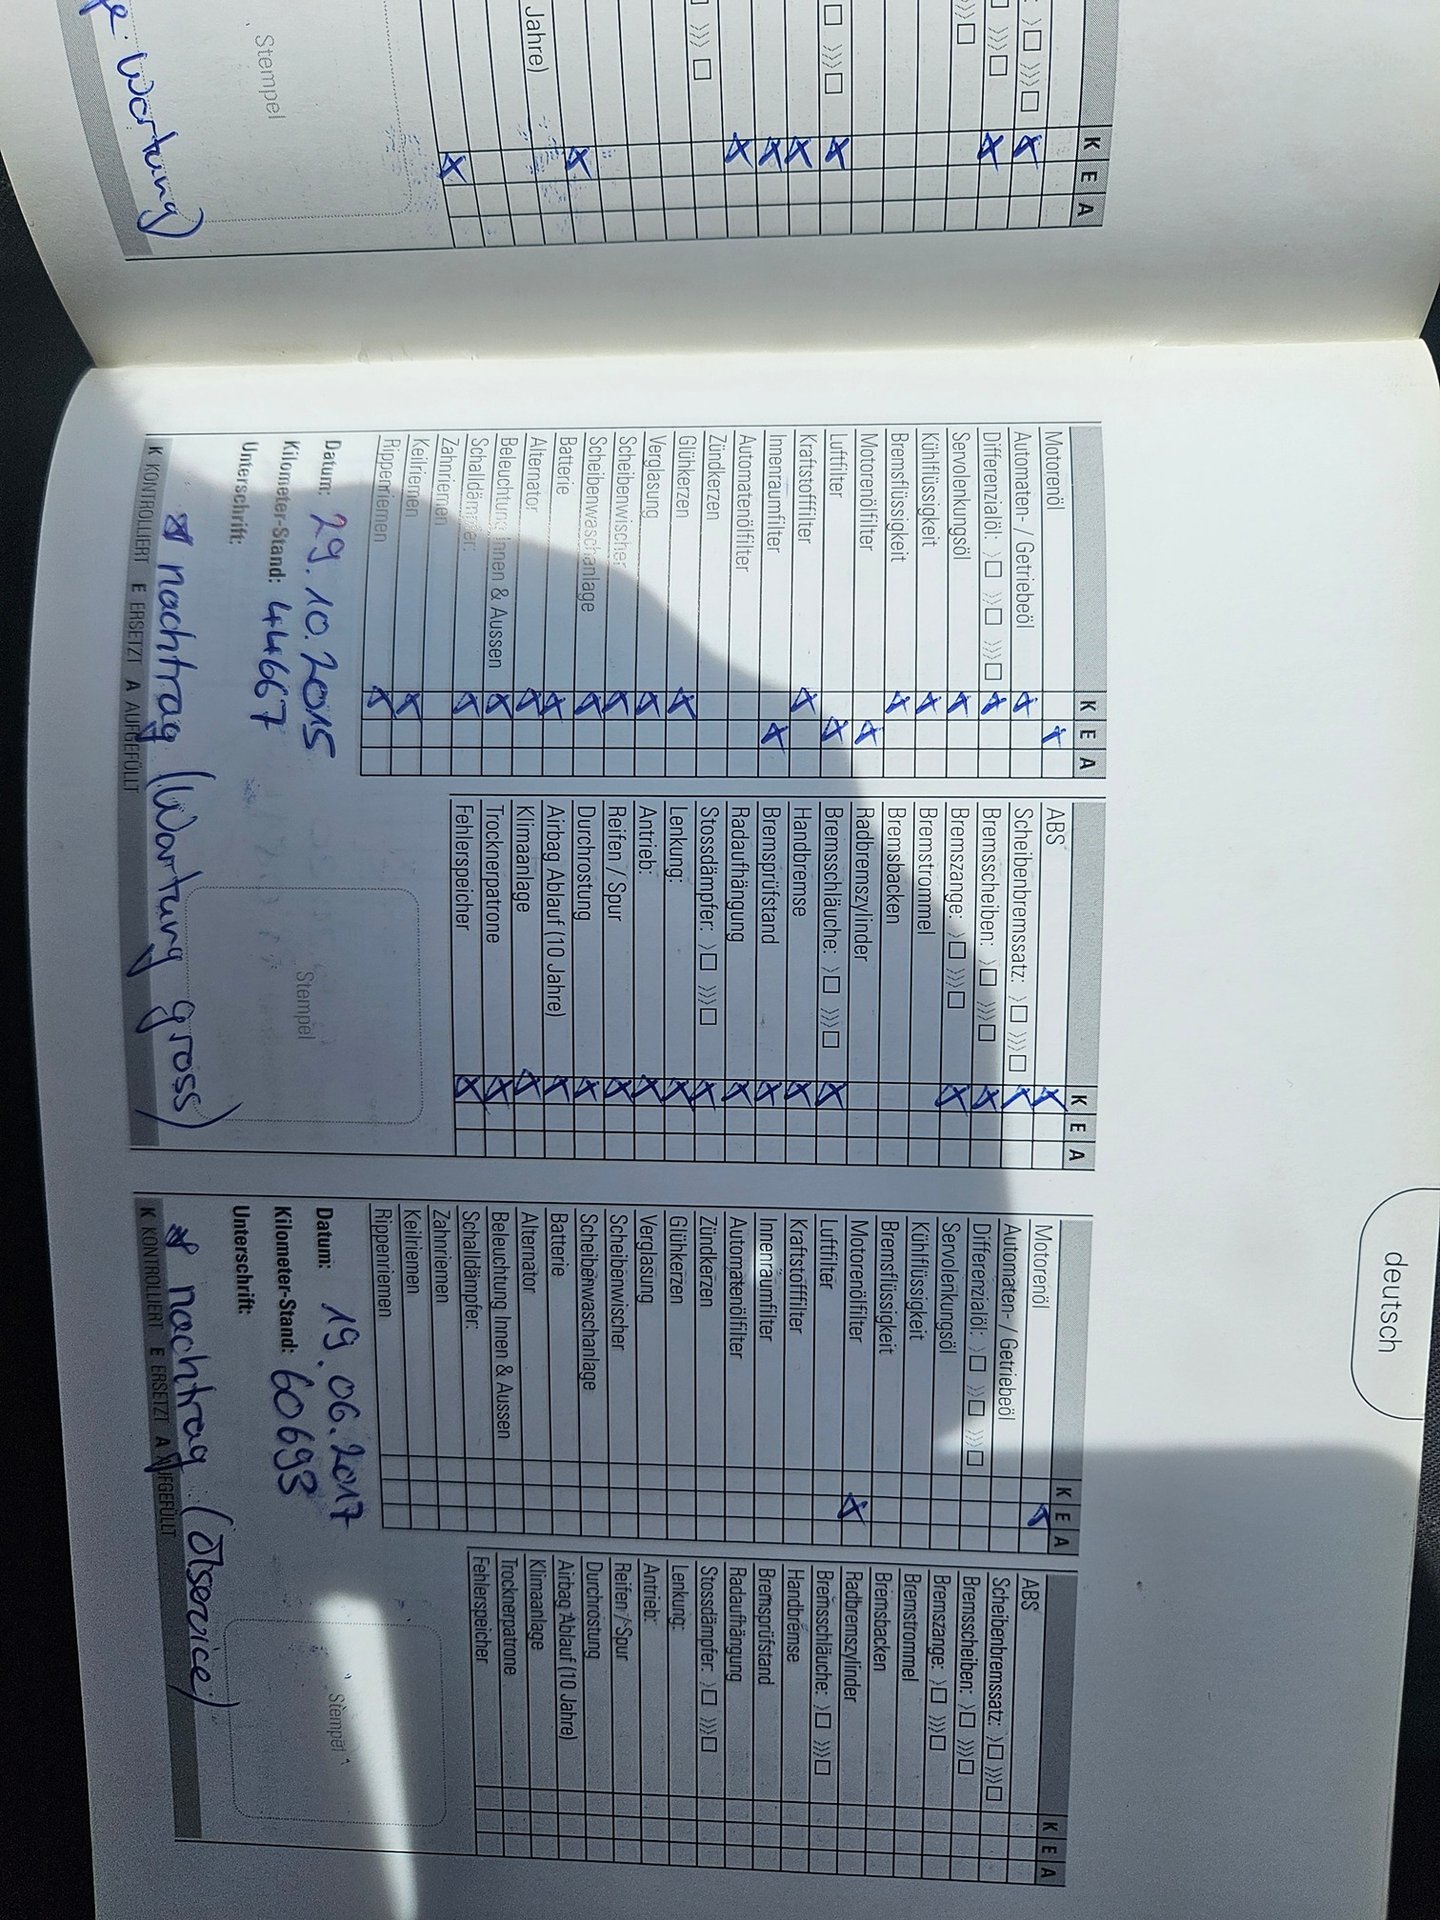 deutsch
K E A
Motorenöl
Automaten- / Getriebeöl
Differenzialöl: 〉□ 〉〉□ 〉〉〉□
Servolenkungsöl
Kühlflüssigkeit
Bremsflüssigkeit
Motorenölfilter
Luftfilter
Kraftstofffilter
Innenraumfilter
Automatenölfilter
Zündkerzen
Glühkerzen
Verglasung
Scheibenwischer
Scheibenwaschanlage
Batterie
Alternator
Beleuchtung Innen & Aussen
Schalldämpfer:
Zahnriemen
Keilriemen
Rippenriemen
Datum: 29.10.2015
Kilometer-Stand: 44667
Unterschrift:
K E A
ABS
Scheibenbremssatz: 〉□ 〉〉〉□
Bremsscheiben: 〉□ 〉〉〉□
Bremszange: 〉□ 〉〉〉□
Bremstrommel
Bremsbacken
Radbremszylinder
Bremsschläuche: 〉□ 〉〉〉□
Handbremse
Bremsprüfstand
Radaufhängung
Stossdämpfer: 〉□ 〉〉〉□
Lenkung:
Antrieb:
Reifen / Spur
Durchrostung
Airbag Ablauf (10 Jahre)
Klimaanlage
Trocknerpatrone
Fehlerspeicher
Stempel
nachtrag (Wartung gross)
K KONTROLLIERT E ERSETZT A AUFGEFÜLLT
K E A
Motorenöl
Automaten- / Getriebeöl
Differenzialöl: 〉□ 〉〉□ 〉〉〉□
Servolenkungsöl
Kühlflüssigkeit
Bremsflüssigkeit
Motorenölfilter
Luftfilter
Kraftstofffilter
Innenraumfilter
Automatenölfilter
Zündkerzen
Glühkerzen
Verglasung
Scheibenwischer
Scheibenwaschanlage
Batterie
Alternator
Beleuchtung Innen & Aussen
Schalldämpfer:
Zahnriemen
Keilriemen
Rippenriemen
Datum: 19.06.2017
Kilometer-Stand: 60693
Unterschrift:
K E A
ABS
Scheibenbremssatz: 〉□ 〉〉〉□
Bremsscheiben: 〉□ 〉〉〉□
Bremszange: 〉□ 〉〉〉□
Bremstrommel
Bremsbacken
Radbremszylinder
Bremsschläuche: 〉□ 〉〉〉□
Handbremse
Bremsprüfstand
Radaufhängung
Stossdämpfer: 〉□ 〉〉〉□
Lenkung:
Antrieb:
Reifen / Spur
Durchrostung
Airbag Ablauf (10 Jahre)
Klimaanlage
Trocknerpatrone
Fehlerspeicher
Stempel
nachtrag (Ölservice)
K KONTROLLIERT E ERSETZT A AUFGEFÜLLT
K E A
Jahre)
Stempel
Wartung)